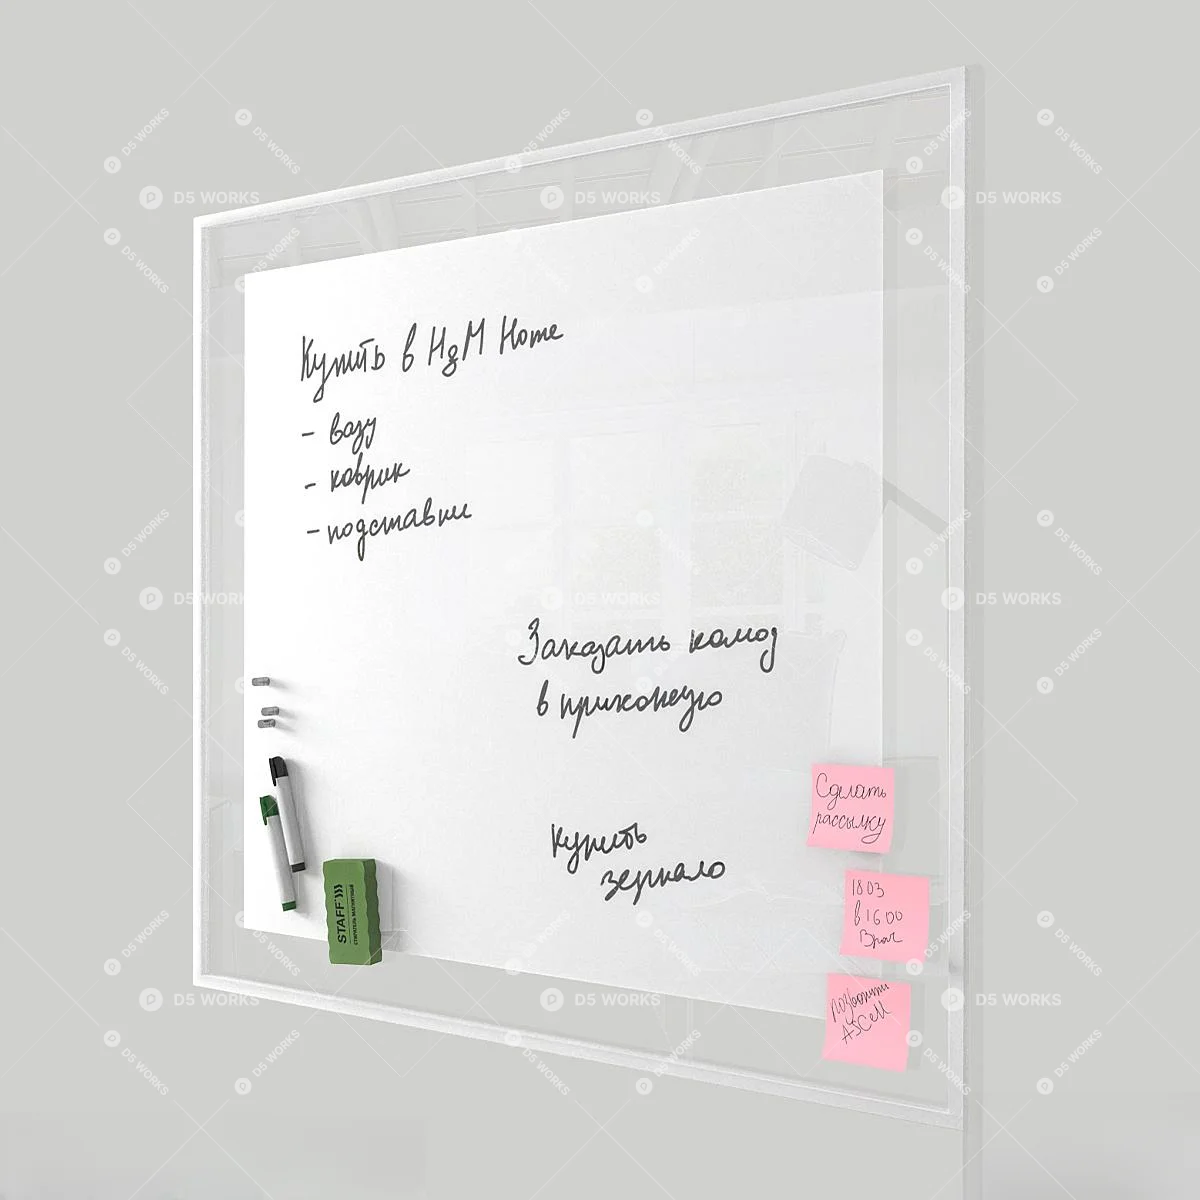 Купить в H&M Home
- вазу
- коврик
- подставки
Заказать комод
в прихожую
Купить
зеркало
Сделать
рассылку
18 03
в 16 00
Врач
позвонить
STAFF
СТИРАТЕЛЬ МАГНИТНЫЙ
D5 WORKS